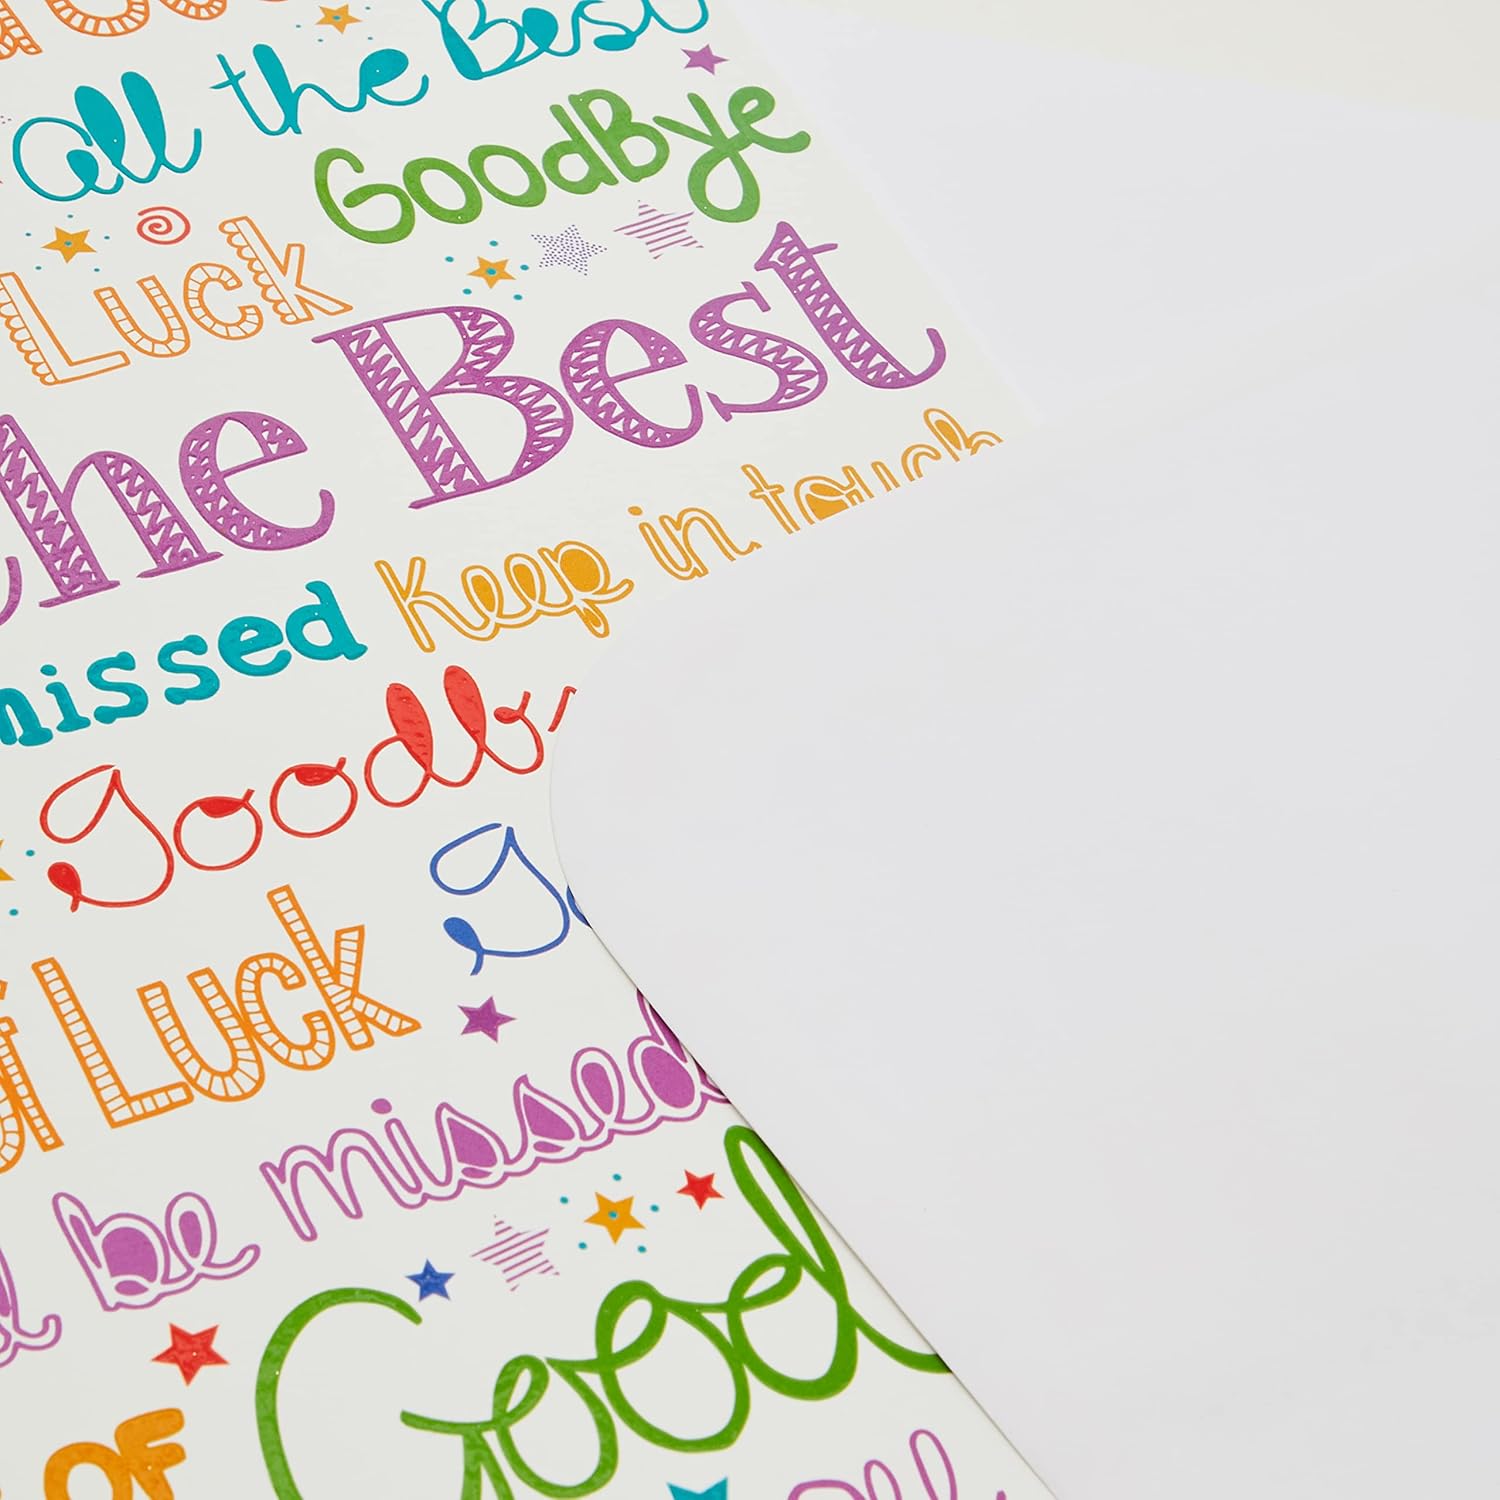 all the Best
GoodBye
Luck
the Best
Keep in touch
missed
goodb
of Luck
be missed
Good
of